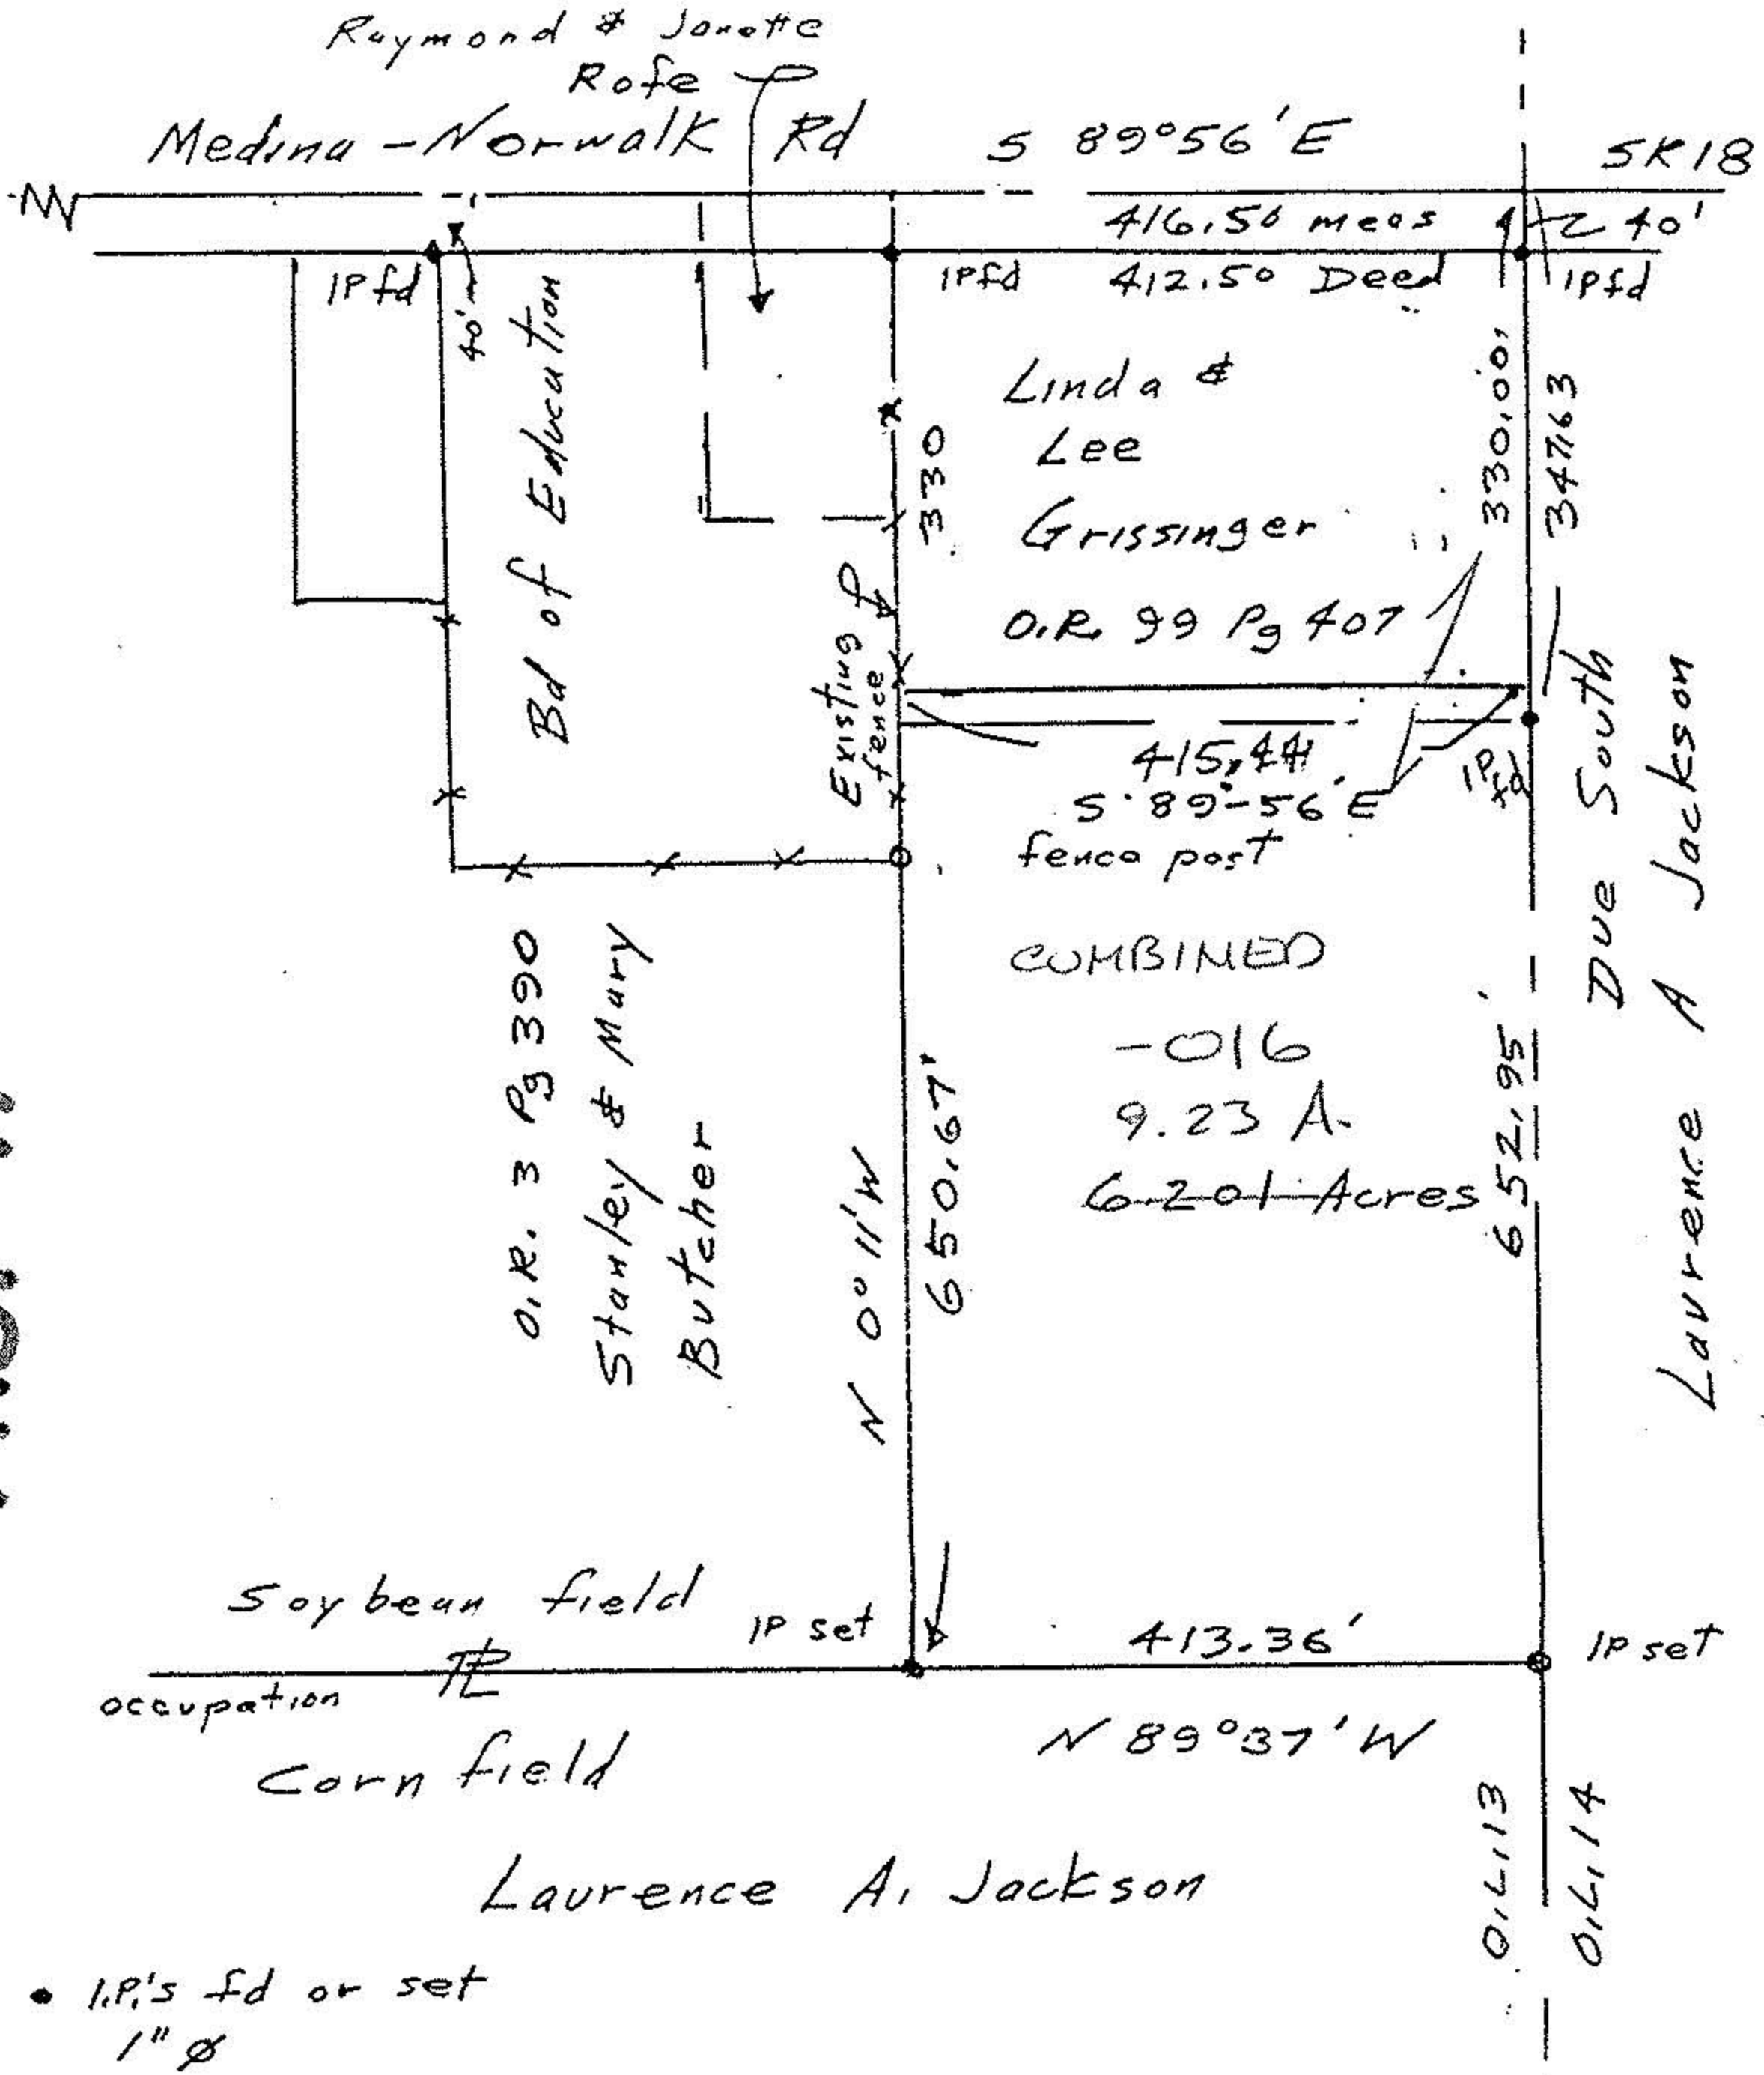 Raymond & Janette
Rofe
Medina-Norwalk Rd
S 89°56'E
SR18
416.50 meas
40'
IPfd
40'
IPfd
412.50 Deed
IPfd
Bd of Education
330
Linda &
Lee
Grissinger
O.R. 99 Pg 407
330.00'
347.63
Existing
fence
415.44'
S 89°-56'E
IPfd
fence post
Due South
Laurence A Jackson
O.R. 3 Pg 390
Stanley & Mary
Butcher
N 0°11'W
650.67'
COMBINED
-016
9.23 A.
6.201 Acres
652.95'
Soybean field
IP set
413.36'
IP set
occupation
N 89°37'W
Corn field
O.L. 13
O.L. 14
Laurence A. Jackson
• I.P.'s fd or set
1" ø